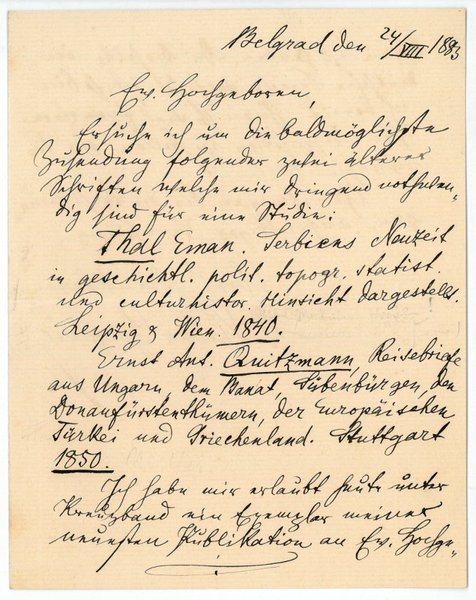 Belgrad den 24/VIII 1883
Ew. Hochgeboren,
Ersuche ich um die baldmöglichste
Zusendung folgender zwei älterer
Schriften welche mir dringend nothwen-
dig sind für eine Studie:
Thal Eman. Serbiens Neuzeit
in geschichtl. polit. topogr. statist.
und culturhistor. Hinsicht dargestellt.
Leipzig & Wien. 1840.
Ernst Ant. Quitzmann, Reisebriefe
aus Ungarn, dem Banat, Siebenbürgen, den
Donaufürstenthümern, der europäischen
Türkei und Griechenland. Stuttgart
1850.
Ich habe mir erlaubt heute unter
Kreuzband ein Exemplar meiner
neuesten Publikation an Ew. Hochge-